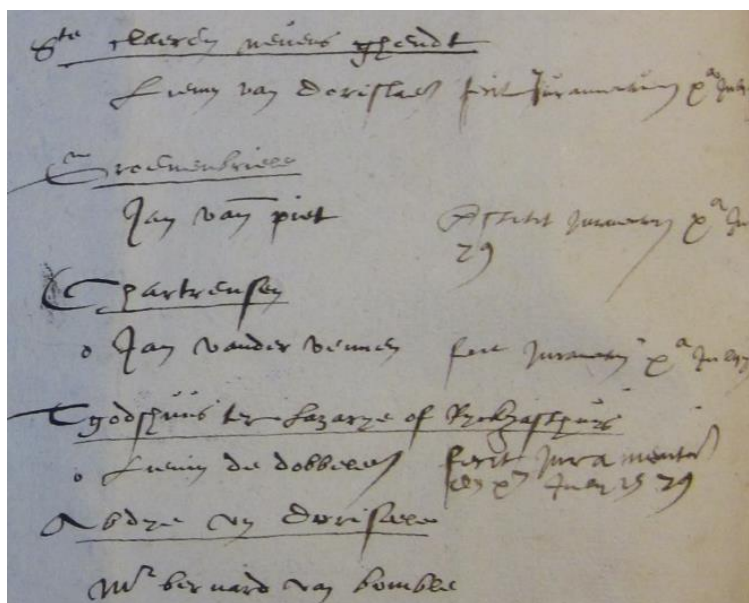 Ste claeren nevens ghendt
Lievin van dorislaer fecit Juramentum xa July
Groenenbriele
Jan van piet
Juramentum xa Ju
29
Tchartreusen
o Jan vander vennen fecit Juramentum xa July
Tgodshuus ter Lazarye of Ryckgasthuus
o Lievin de dobbelere fecit Juramentum
xa July 1529
Abdye van dorisele
Mr bernard van bomble